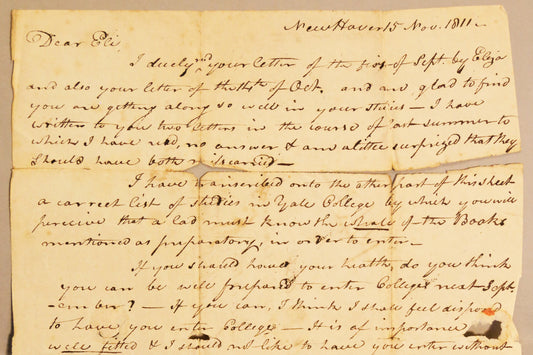 New Haven 15 Nov. 1811
Dear Eli,
I duely recd your letter of the of Sept. by Eliza
and also your letter of the 4th of Oct. and am glad to find
you are getting along so well in your studies — I have
written to you two letters in the course of last summer to
which I have recd, no answer & am a little surprized that they
should have both miscarried —
I have transcribed onto the other part of this sheet
a correct list of studies in Yale College by which you will
percieve that a lad must know the whole of the Books
mentioned as preparatory, in order to enter —
If you should have your health, do you think
you can be well prepared to enter College next Sept-
ember? — If you can, I think I shall feel disposed
to have you enter College — It is of importance
well fitted & I should not like to have you enter without